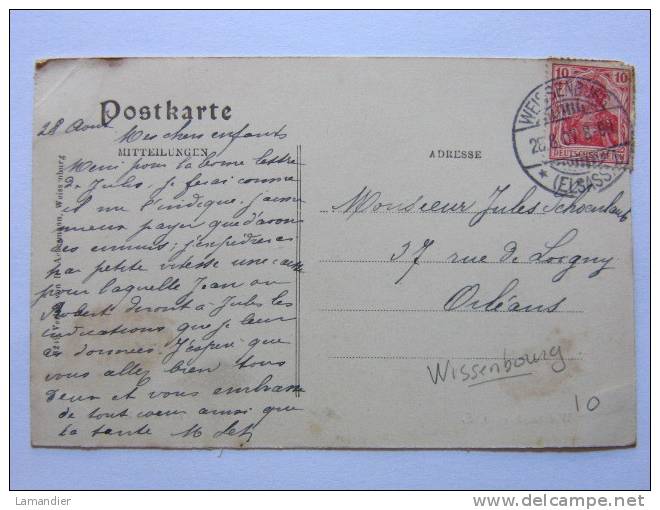 Postkarte
28 Aout
Mes chers enfants
MITTEILUNGEN
Merci pour la bonne lettre
de Jules, je ferai comme
il me l'indique; j'aime
mieux payer que d'avoir
des ennuis; j'expédierai
par petite vitesse une caisse
pour laquelle Jean ou
Robert diront à Jules les
indications que je leur
ai données. J'espère que
vous allez bien tous
deux et vous embrasse
de tout coeur ainsi que
la tante
ADRESSE
Monsieur Jules Schoenlaub
37 rue de Loigny
Orléans
Wissenbourg
10
WEISSENBURG
(ELSASS)
10 10
DEUTSCHES REICH
Lamandier
delcampe.net